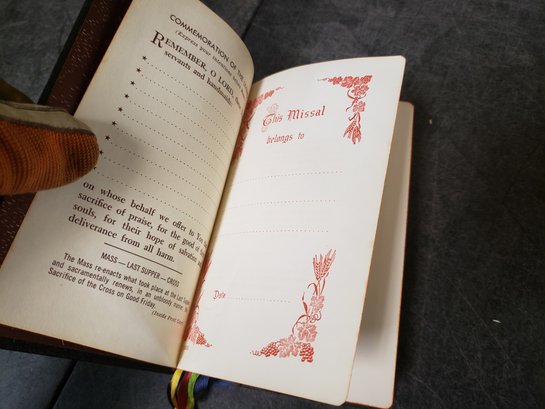 COMMEMORATION OF THE
(Express your intentions
REMEMBER, O LORD,
servants and handmaids
on whose behalf we offer to You
sacrifice of praise, for the good of
souls, for their hope of salvation
deliverance from all harm.
MASS — LAST SUPPER — CROSS
The Mass re-enacts what took place at the Last Supper
and sacramentally renews, in an unbloody
Sacrifice of the Cross on Good Friday.
(Inside Front
This Missal
belongs to
Date